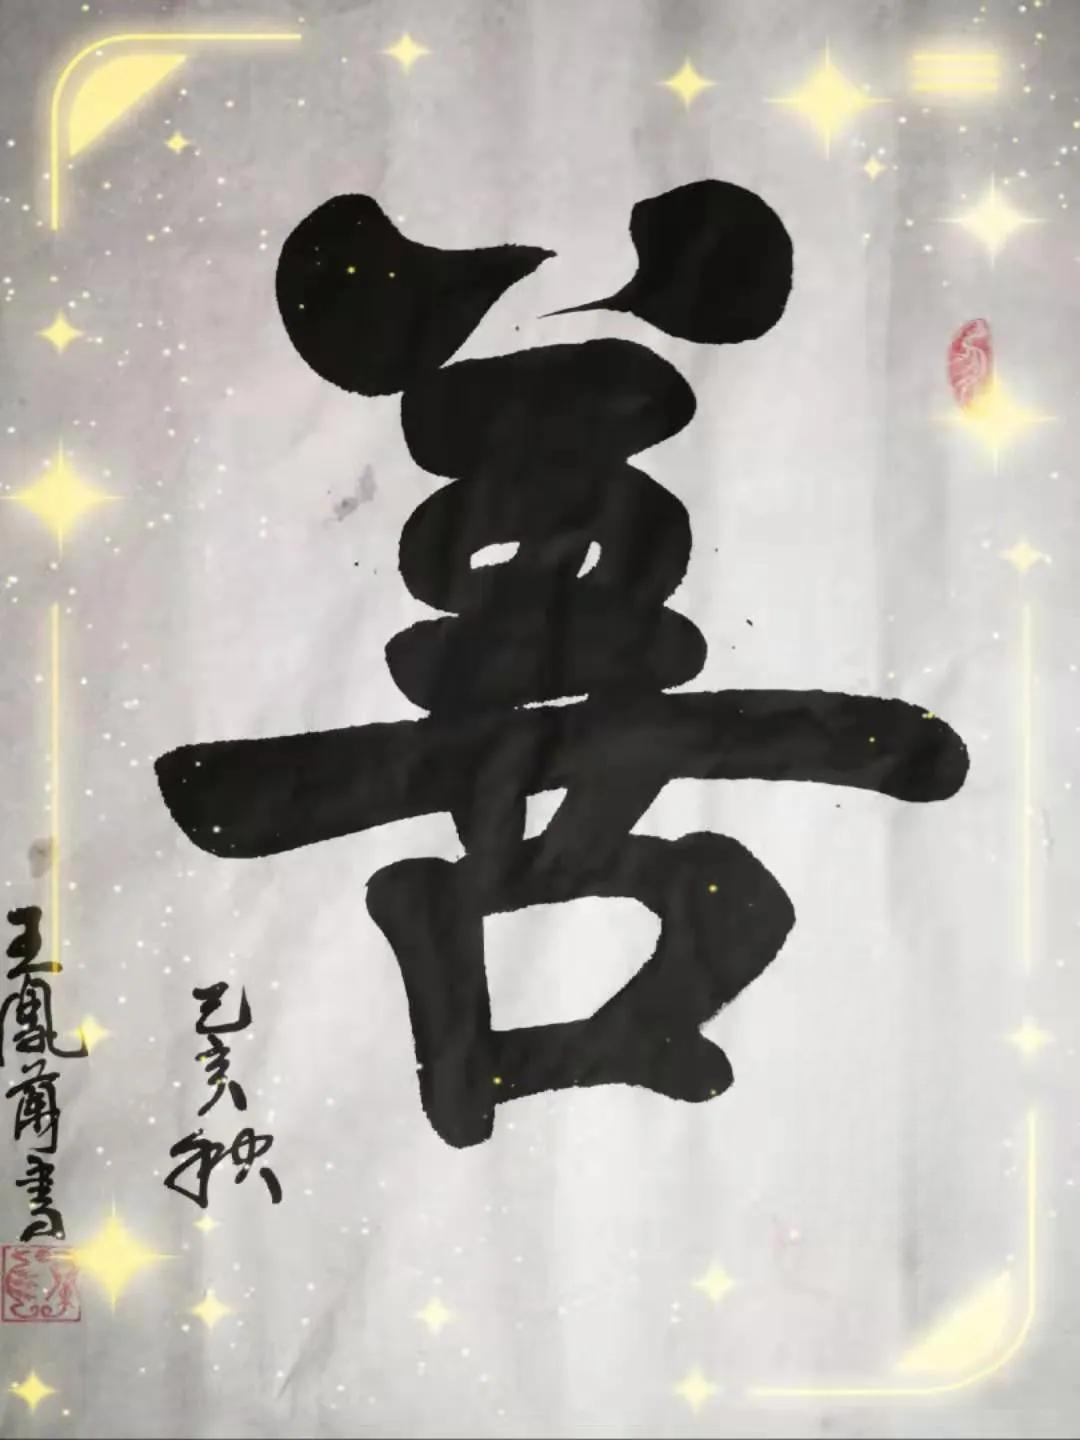 善
己亥秋
王鳳蘭書